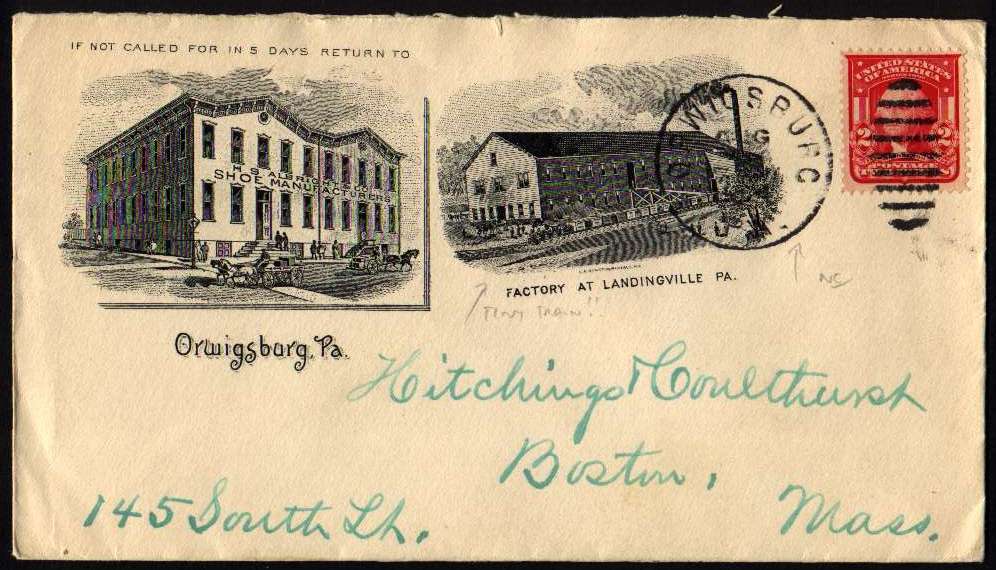 IF NOT CALLED FOR IN 5 DAYS RETURN TO
H. S. ALBRI
SHOE MANUFACTURERS
FACTORY AT LANDINGVILLE PA.
Orwigsburg, Pa.
WIGSBURG
UNITED STATES
OF AMERICA
2 2
POSTAGE
TINY TRAIN!!
NS
Hitchings & Coulthurst
Boston,
Mass.
145 South St.